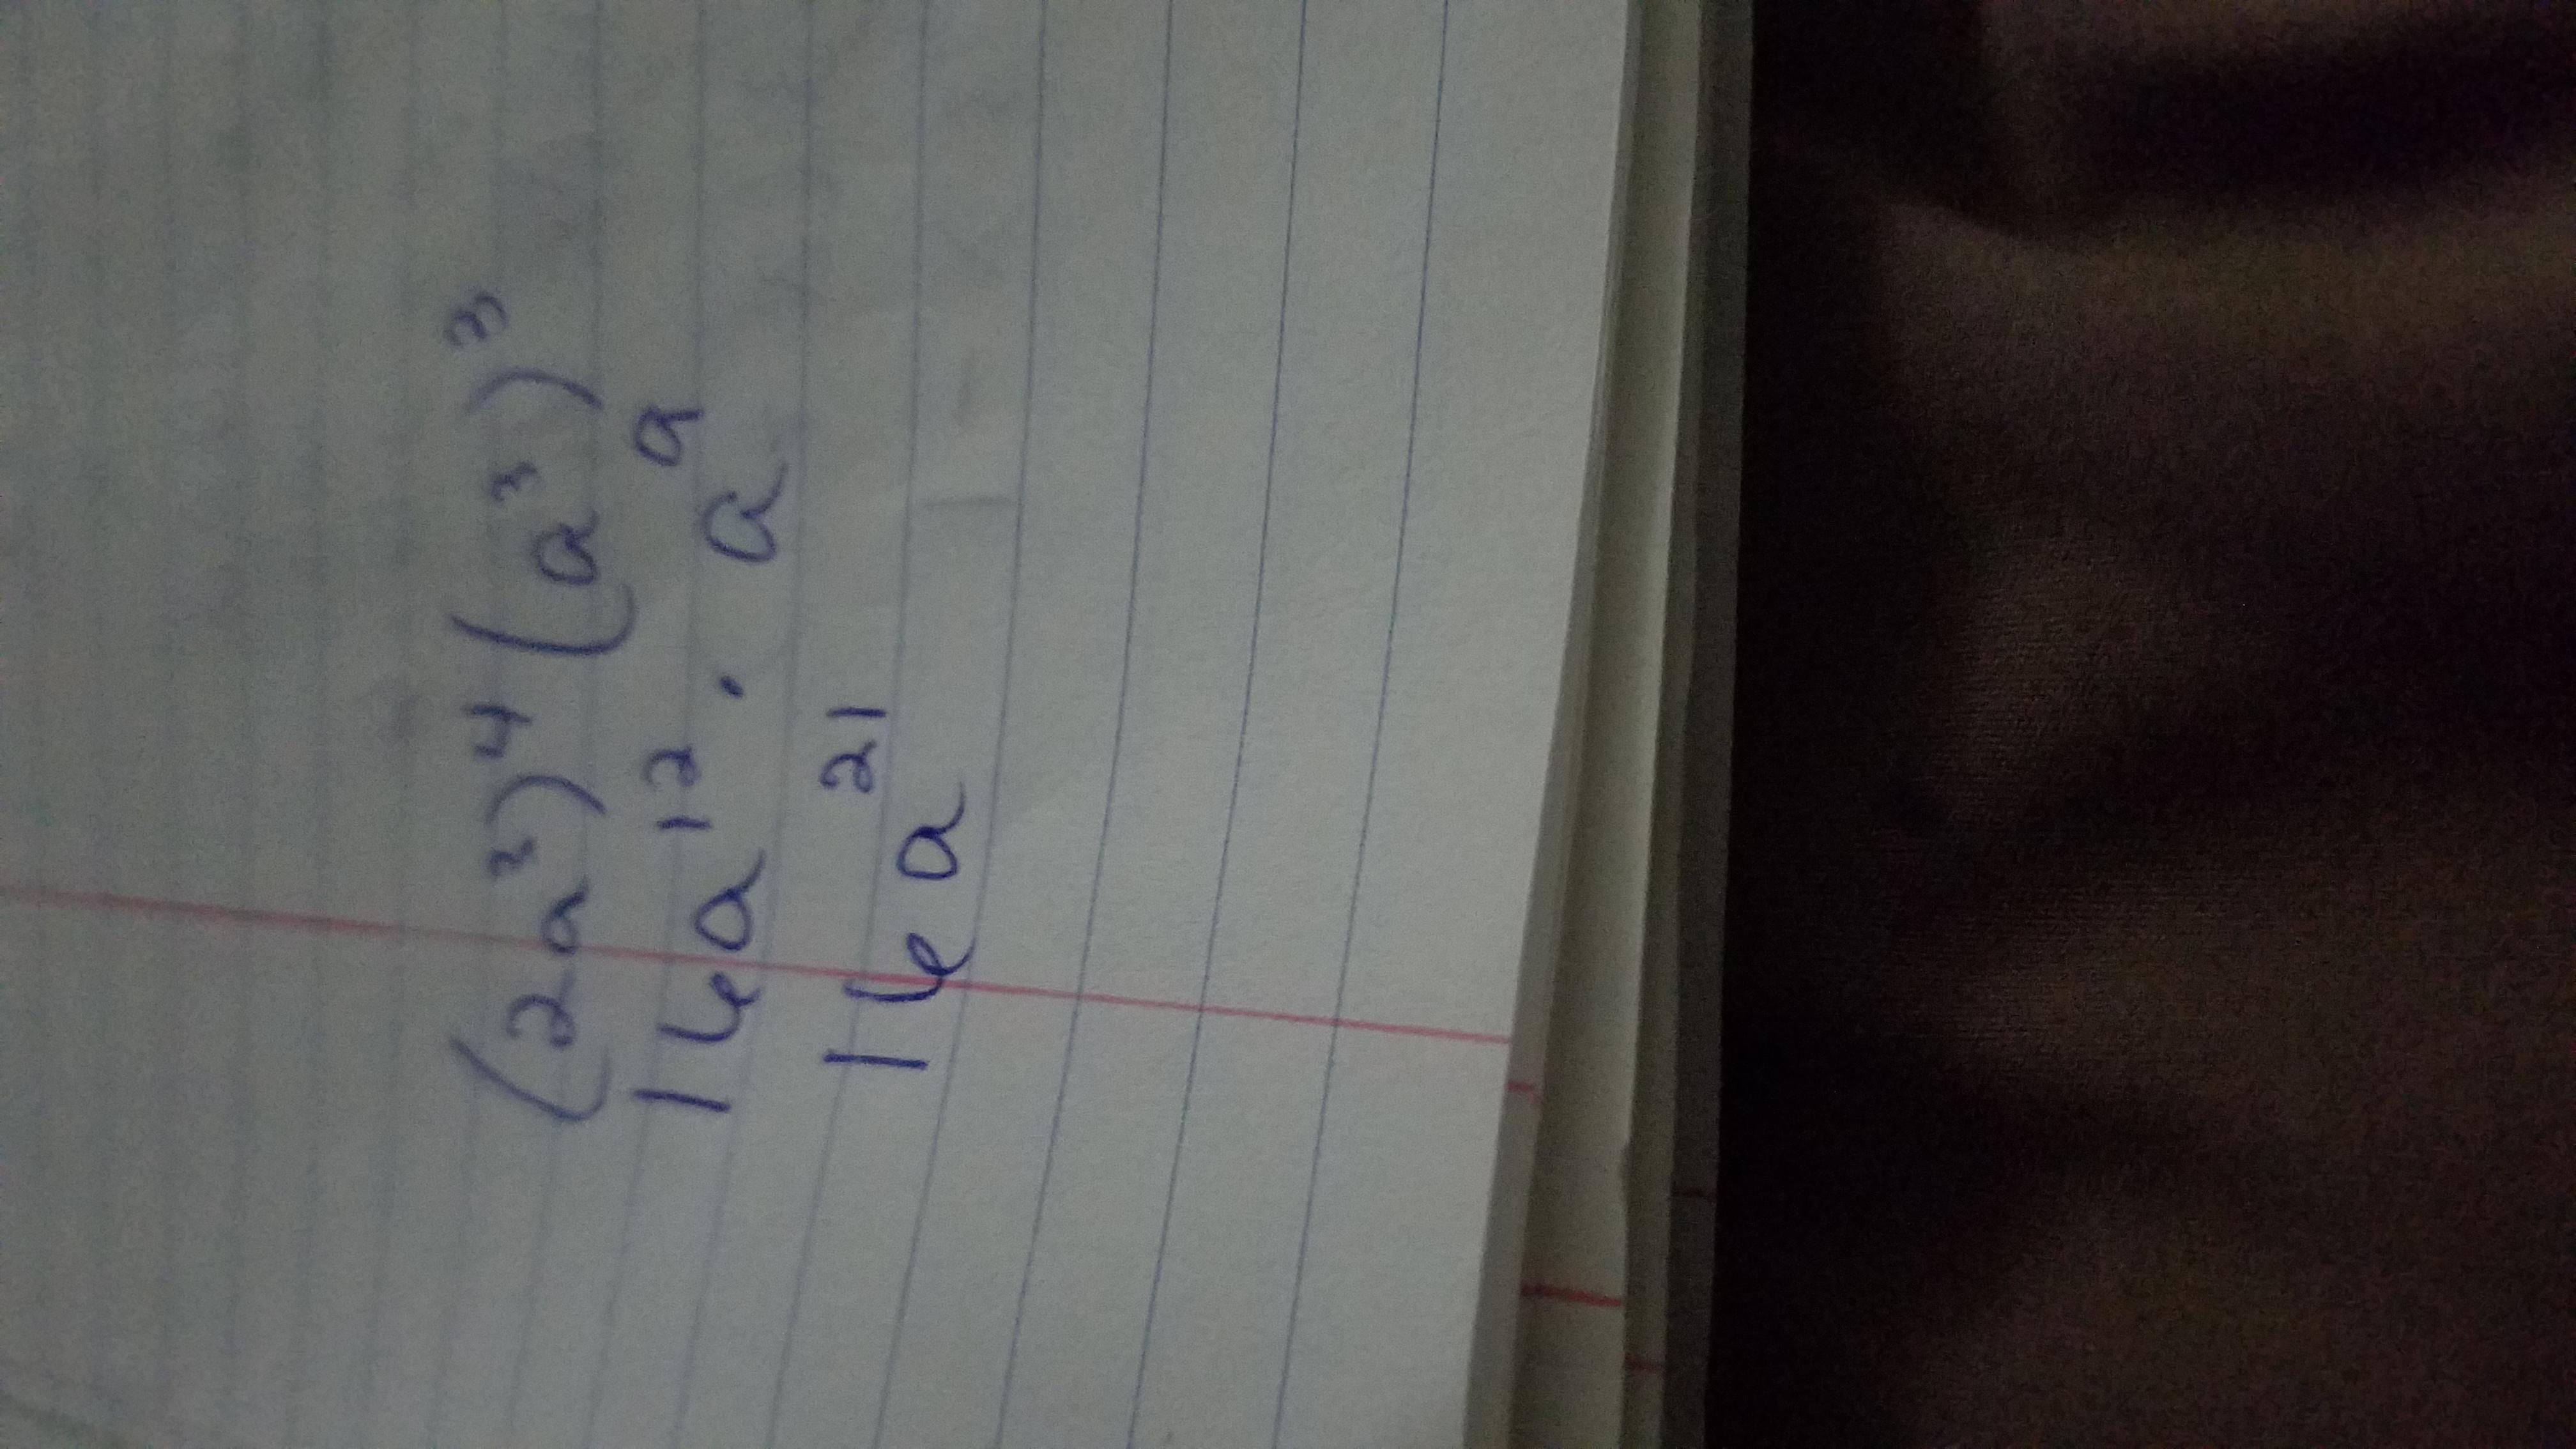 (2a³)⁴(a³)³
16a¹² · a⁹
16a²¹